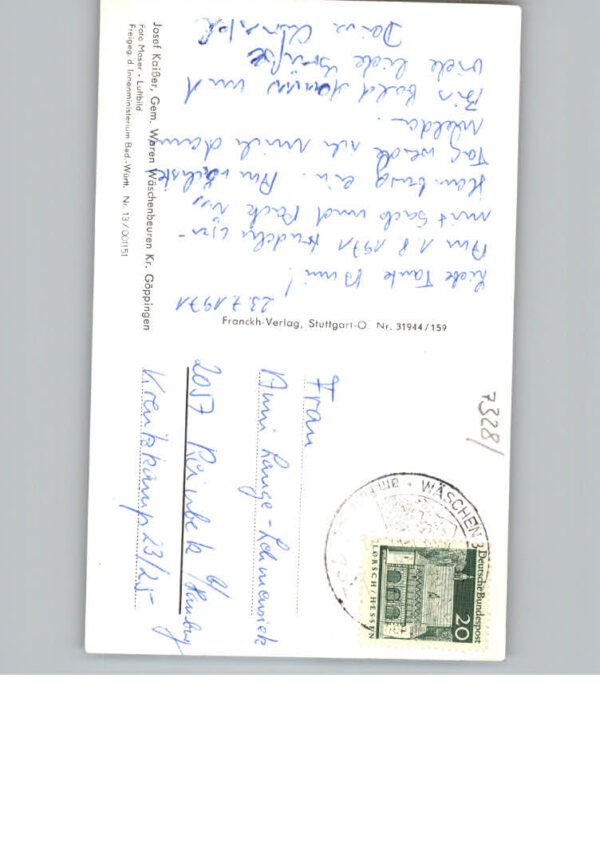 23.7.1971
Liebe Tante Anni!
Am 1.8.1971 trudeln wir
mit Sack und Pack in
Hamburg ein. Am nächsten
Tag werde ich mich dann
melden.
Bis bald tschüss und
viele liebe Grüße
Deine
Josef Kaißer, Gem. Waren Wäschenbeuren Kr. Göppingen
Foto Moser · Luftbild
Freigeg. d. Innenministerium Bad.-Württ. Nr. 13/001151
Franckh-Verlag, Stuttgart-O Nr. 31944/159
7328/
Frau
Anni Lange-
2057 Reinbek b/Hamburg
Kreutzkamp 23/25
WÄSCHENB
Deutsche Bundespost
20
LORSCH/HESSEN